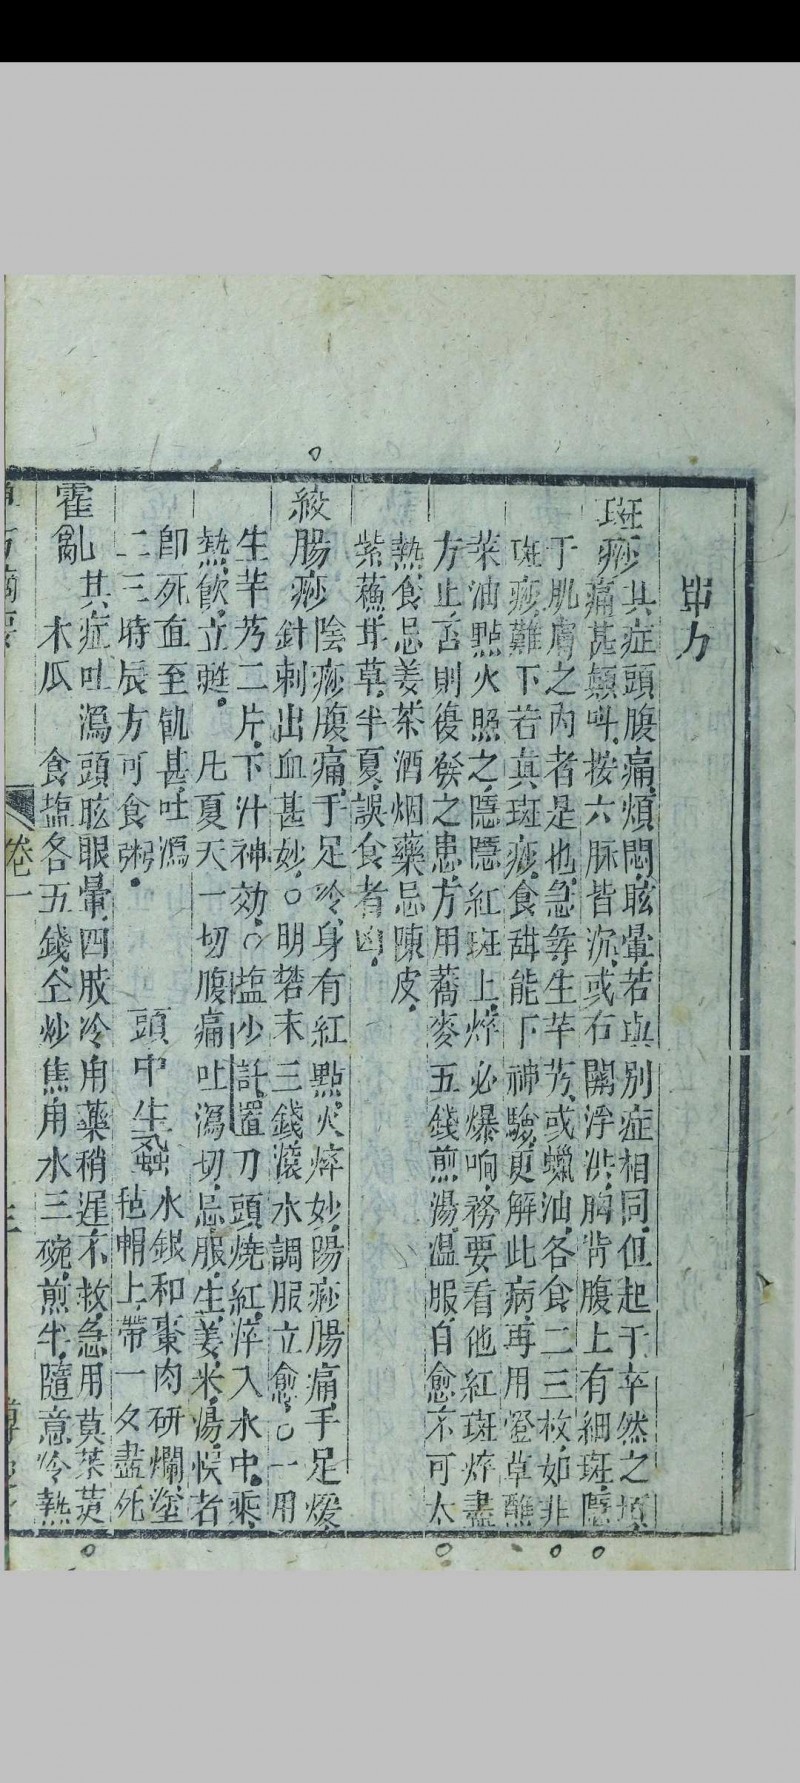 單方
斑痧其症頭腹痛、煩悶、眩暈、若與別症相同、但起于卒然之頃、
痛甚顛叫、按六脉皆沉、或右關浮洪、胸背腹上有細斑、隱
于肌膚之內者是也、急尋生芋艿、或蠟油、各食二三枚、如非
斑痧、難下、若真斑痧、食甜能下神驗、更解此病、再用燈草蘸
菜油點火照之、隱隱紅斑上、焠必爆响、務要看他紅斑焠盡
方止、否則復發之患、方用蕎麥五錢煎湯、溫服、自愈、不可太
熱、食忌姜茶酒烟、藥忌陳皮、
紫蘓、甘草、半夏、誤食者凶、
絞腸痧陰痧腹痛、手足冷、身有紅點、火焠妙、陽痧腸痛、手足煖、
針刺出血甚妙、○明礬末三錢滾水調服立愈、○一用
生芋艿二片、下汁神効、○塩少許、置刀頭燒紅、淬入水中、乘
熱飲、立甦。凡夏天一切腹痛吐瀉、切忌服生姜、米湯、悞者
卽死、直至飢甚、吐瀉
二三時辰方可食粥。
頭中生蝨水銀和棗肉研爛、塗
毡帽上、帶一夕盡死
霍亂其症吐瀉頭眩眼暈、四肢冷、用藥稍遲、不救、急用茱萸
木瓜 食塩各五錢、仝炒焦、用水三碗、煎半、隨意冷熱
單方摘要
卷一
三